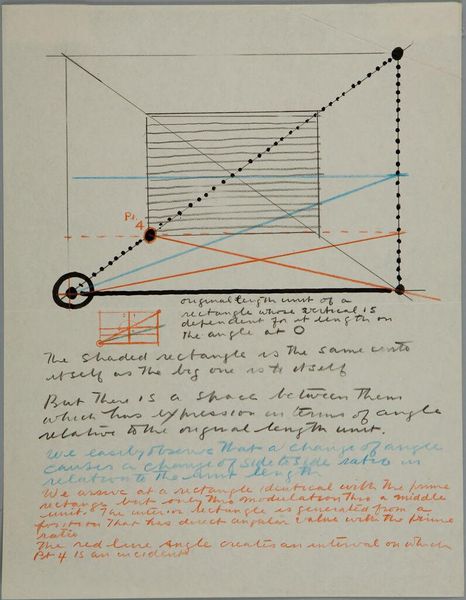 Pt.
4
original length unit of a
rectangle whose vertical is
dependent for it length on
the angle at O
The shaded rectangle is the same unto
itself as the big one is to itself
But There is a space between them
which has expression in terms of angle
relative to the original length unit.
We easily observe that a change of angle
causes a change of side to side ratio in
relation to the unit length
We arrive at a rectangle identical with the prime
rectangle but only thru modulation thru a middle
unit. The interior rectangle is generated from a
position that has direct angular value with the prime
ratio
The red line angle creates an interval on which
Pt 4 is an incident